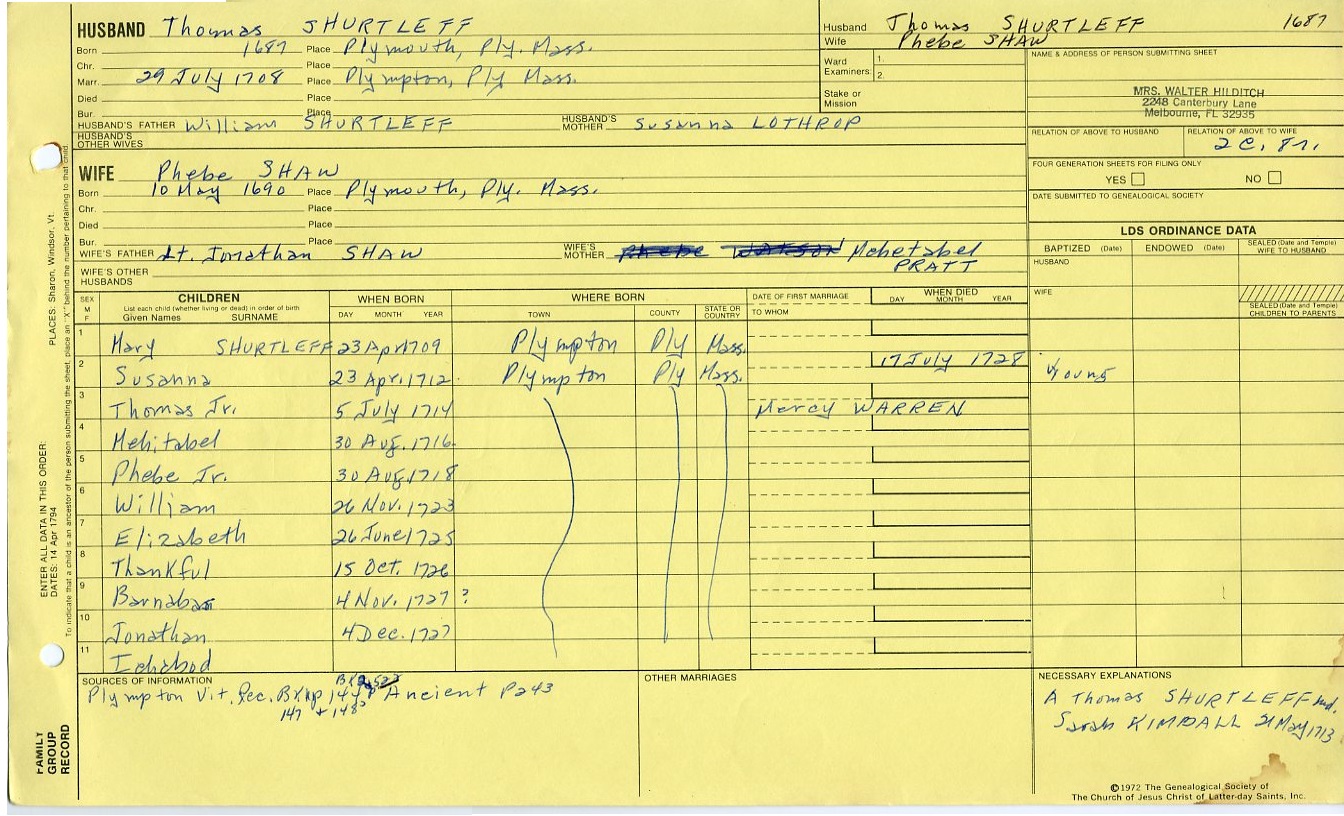 HUSBAND Thomas SHURTLEFF
Born 1687 Place Plymouth, Ply. Mass.
Chr. Place
Marr. 29 July 1708 Place Plympton, Ply Mass.
Died Place
Bur. Place
HUSBAND'S FATHER William SHURTLEFF HUSBAND'S MOTHER Susanna LOTHROP
HUSBAND'S OTHER WIVES
Husband Thomas SHURTLEFF 1687
Wife Phebe SHAW
Ward 1.
Examiners: 2.
Stake or Mission
NAME & ADDRESS OF PERSON SUBMITTING SHEET
MRS. WALTER HILDITCH
2248 Canterbury Lane
Melbourne, FL 32935
RELATION OF ABOVE TO HUSBAND RELATION OF ABOVE TO WIFE
2 C. 8r.
FOUR GENERATION SHEETS FOR FILING ONLY
YES NO
DATE SUBMITTED TO GENEALOGICAL SOCIETY
WIFE Phebe SHAW
Born 10 May 1690 Place Plymouth, Ply. Mass.
Chr. Place
Died Place
Bur. Place
WIFE'S FATHER Lt. Jonathan SHAW WIFE'S MOTHER Phebe Watson Mehetabel PRATT
WIFE'S OTHER HUSBANDS
LDS ORDINANCE DATA
BAPTIZED (Date) ENDOWED (Date) SEALED (Date and Temple) WIFE TO HUSBAND
HUSBAND
WIFE
SEALED (Date and Temple) CHILDREN TO PARENTS
SEX M F CHILDREN WHEN BORN WHERE BORN DATE OF FIRST MARRIAGE WHEN DIED
List each child (whether living or dead) in order of birth
Given Names SURNAME DAY MONTH YEAR TOWN COUNTY STATE OR COUNTRY TO WHOM DAY MONTH YEAR
1 Mary SHURTLEFF 23 Apr 1709 Plympton Ply Mass.
2 Susanna 23 Apr. 1712 Plympton Ply Mass. 17 July 1728 young
3 Thomas Jr. 5 July 1714 Mercy WARREN
4 Mehitabel 30 Aug. 1716
5 Phebe Jr. 30 Aug. 1718
6 William 26 Nov. 1723
7 Elizabeth 26 June 1725
8 Thankful 15 Oct. 1726
9 Barnabas 4 Nov. 1727 ?
10 Jonathan 4 Dec. 1727
11 Ichabod
SOURCES OF INFORMATION
Plympton Vit. Rec. Ancient P243
147 + 148
OTHER MARRIAGES
NECESSARY EXPLANATIONS
A Thomas SHURTLEFF md.
Sarah KIMBALL 21 May 1713
©1972 The Genealogical Society of
The Church of Jesus Christ of Latter-day Saints, Inc.
FAMILY GROUP RECORD
ENTER ALL DATA IN THIS ORDER:
DATES: 14 Apr 1794
PLACES: Sharon, Windsor, Vt.
To indicate that a child is an ancestor of the person submitting the sheet, place an "X" behind the number pertaining to that child.